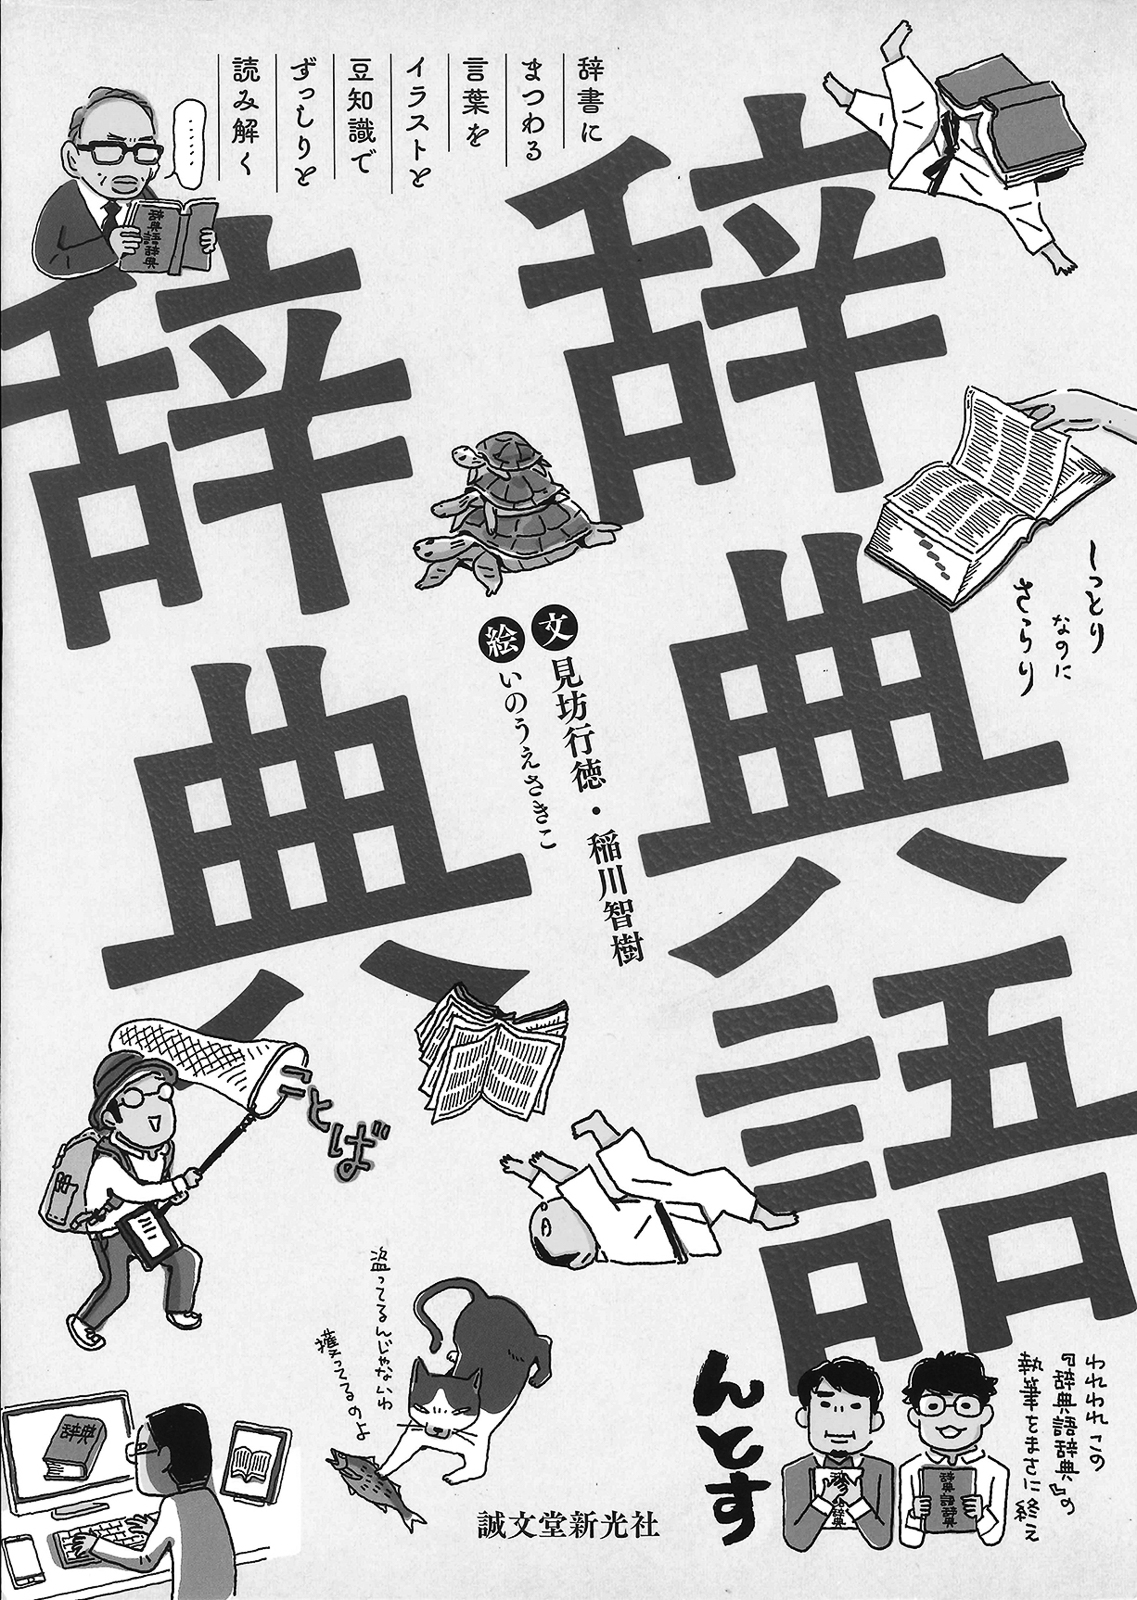 辞書に
まつわる
言葉を
イラストと
豆知識で
ずっしりと
読み解く
……
辞典語辞典
辞典語
辞典
しっとり
なのに
さらり
文 見坊行徳・稲川智樹
絵 いのうえさきこ
ことば
盗ってるんじゃないわ
獲ってるのよ
辞典
われわれ この
『辞典語辞典』の
執筆をまさに終え
んとす
辞典語辞典
辞典語辞典
誠文堂新光社